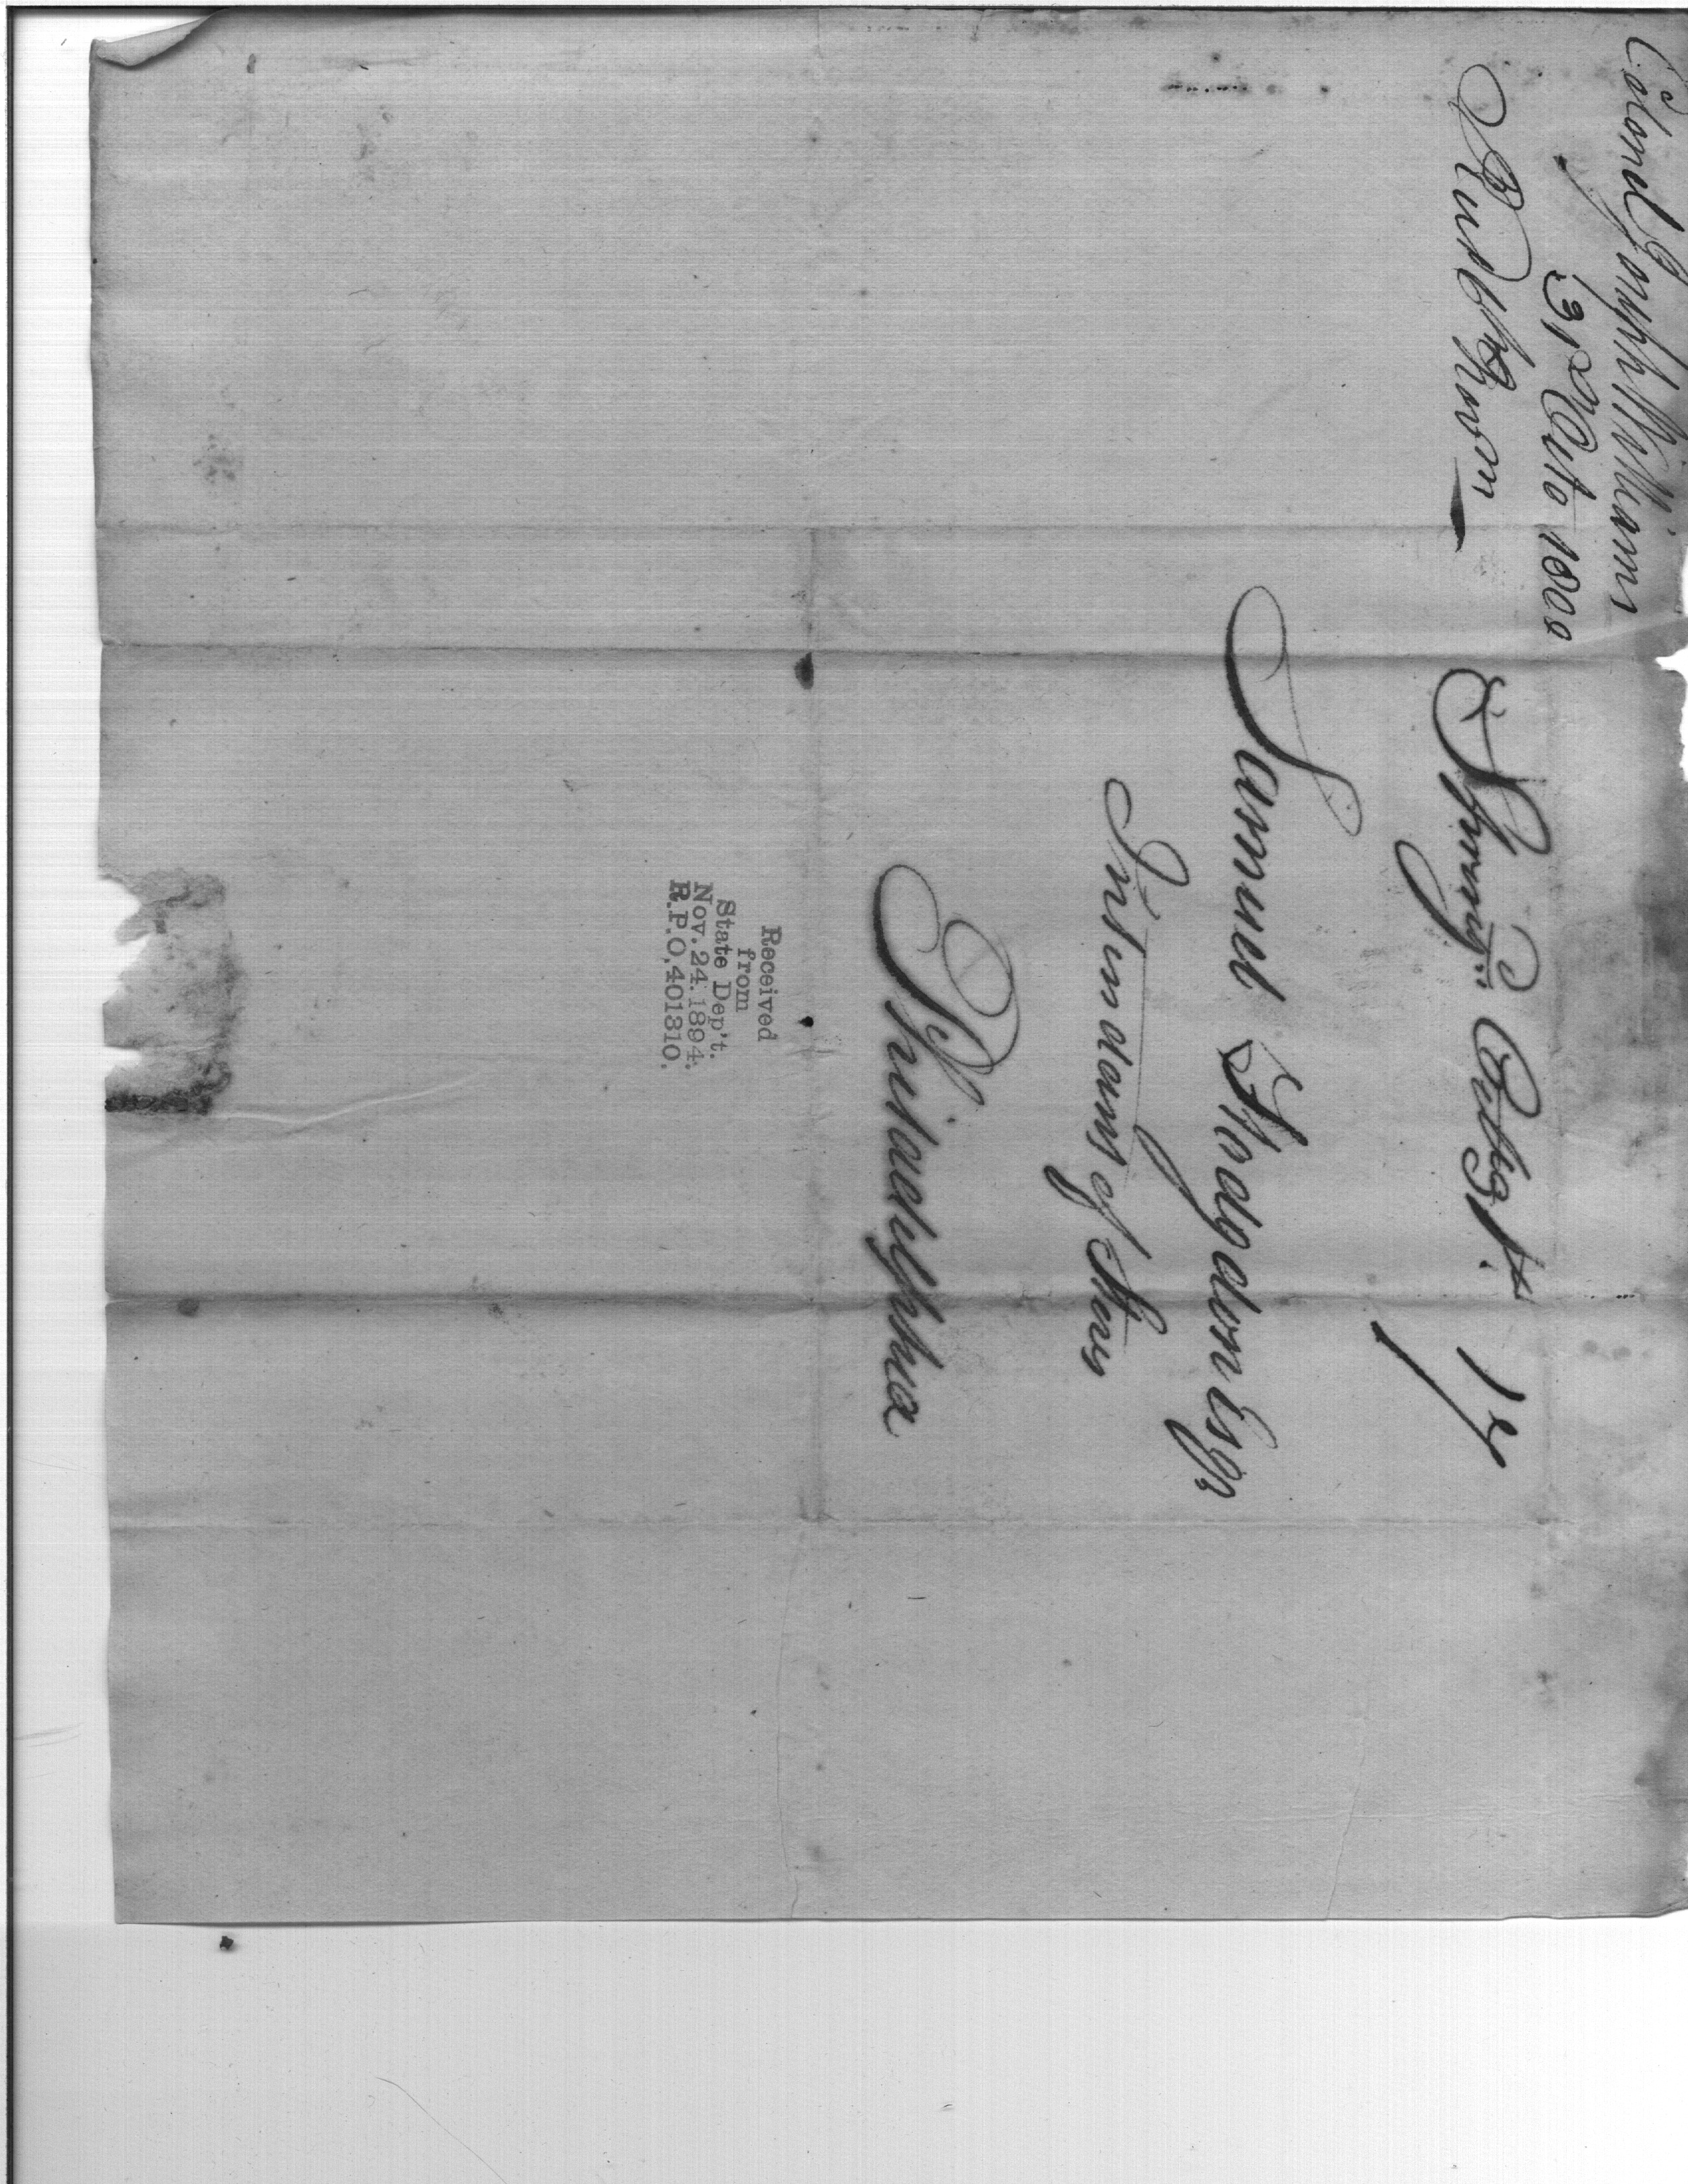 Colonel Jonath Williams
31st Octo 1800
Rec'd
Samuel Hodgdon Esqr
Intendant of Stores
Philadelphia
Received
from
State Dep't.
Nov. 24. 1894.
R.P.O, 401310.